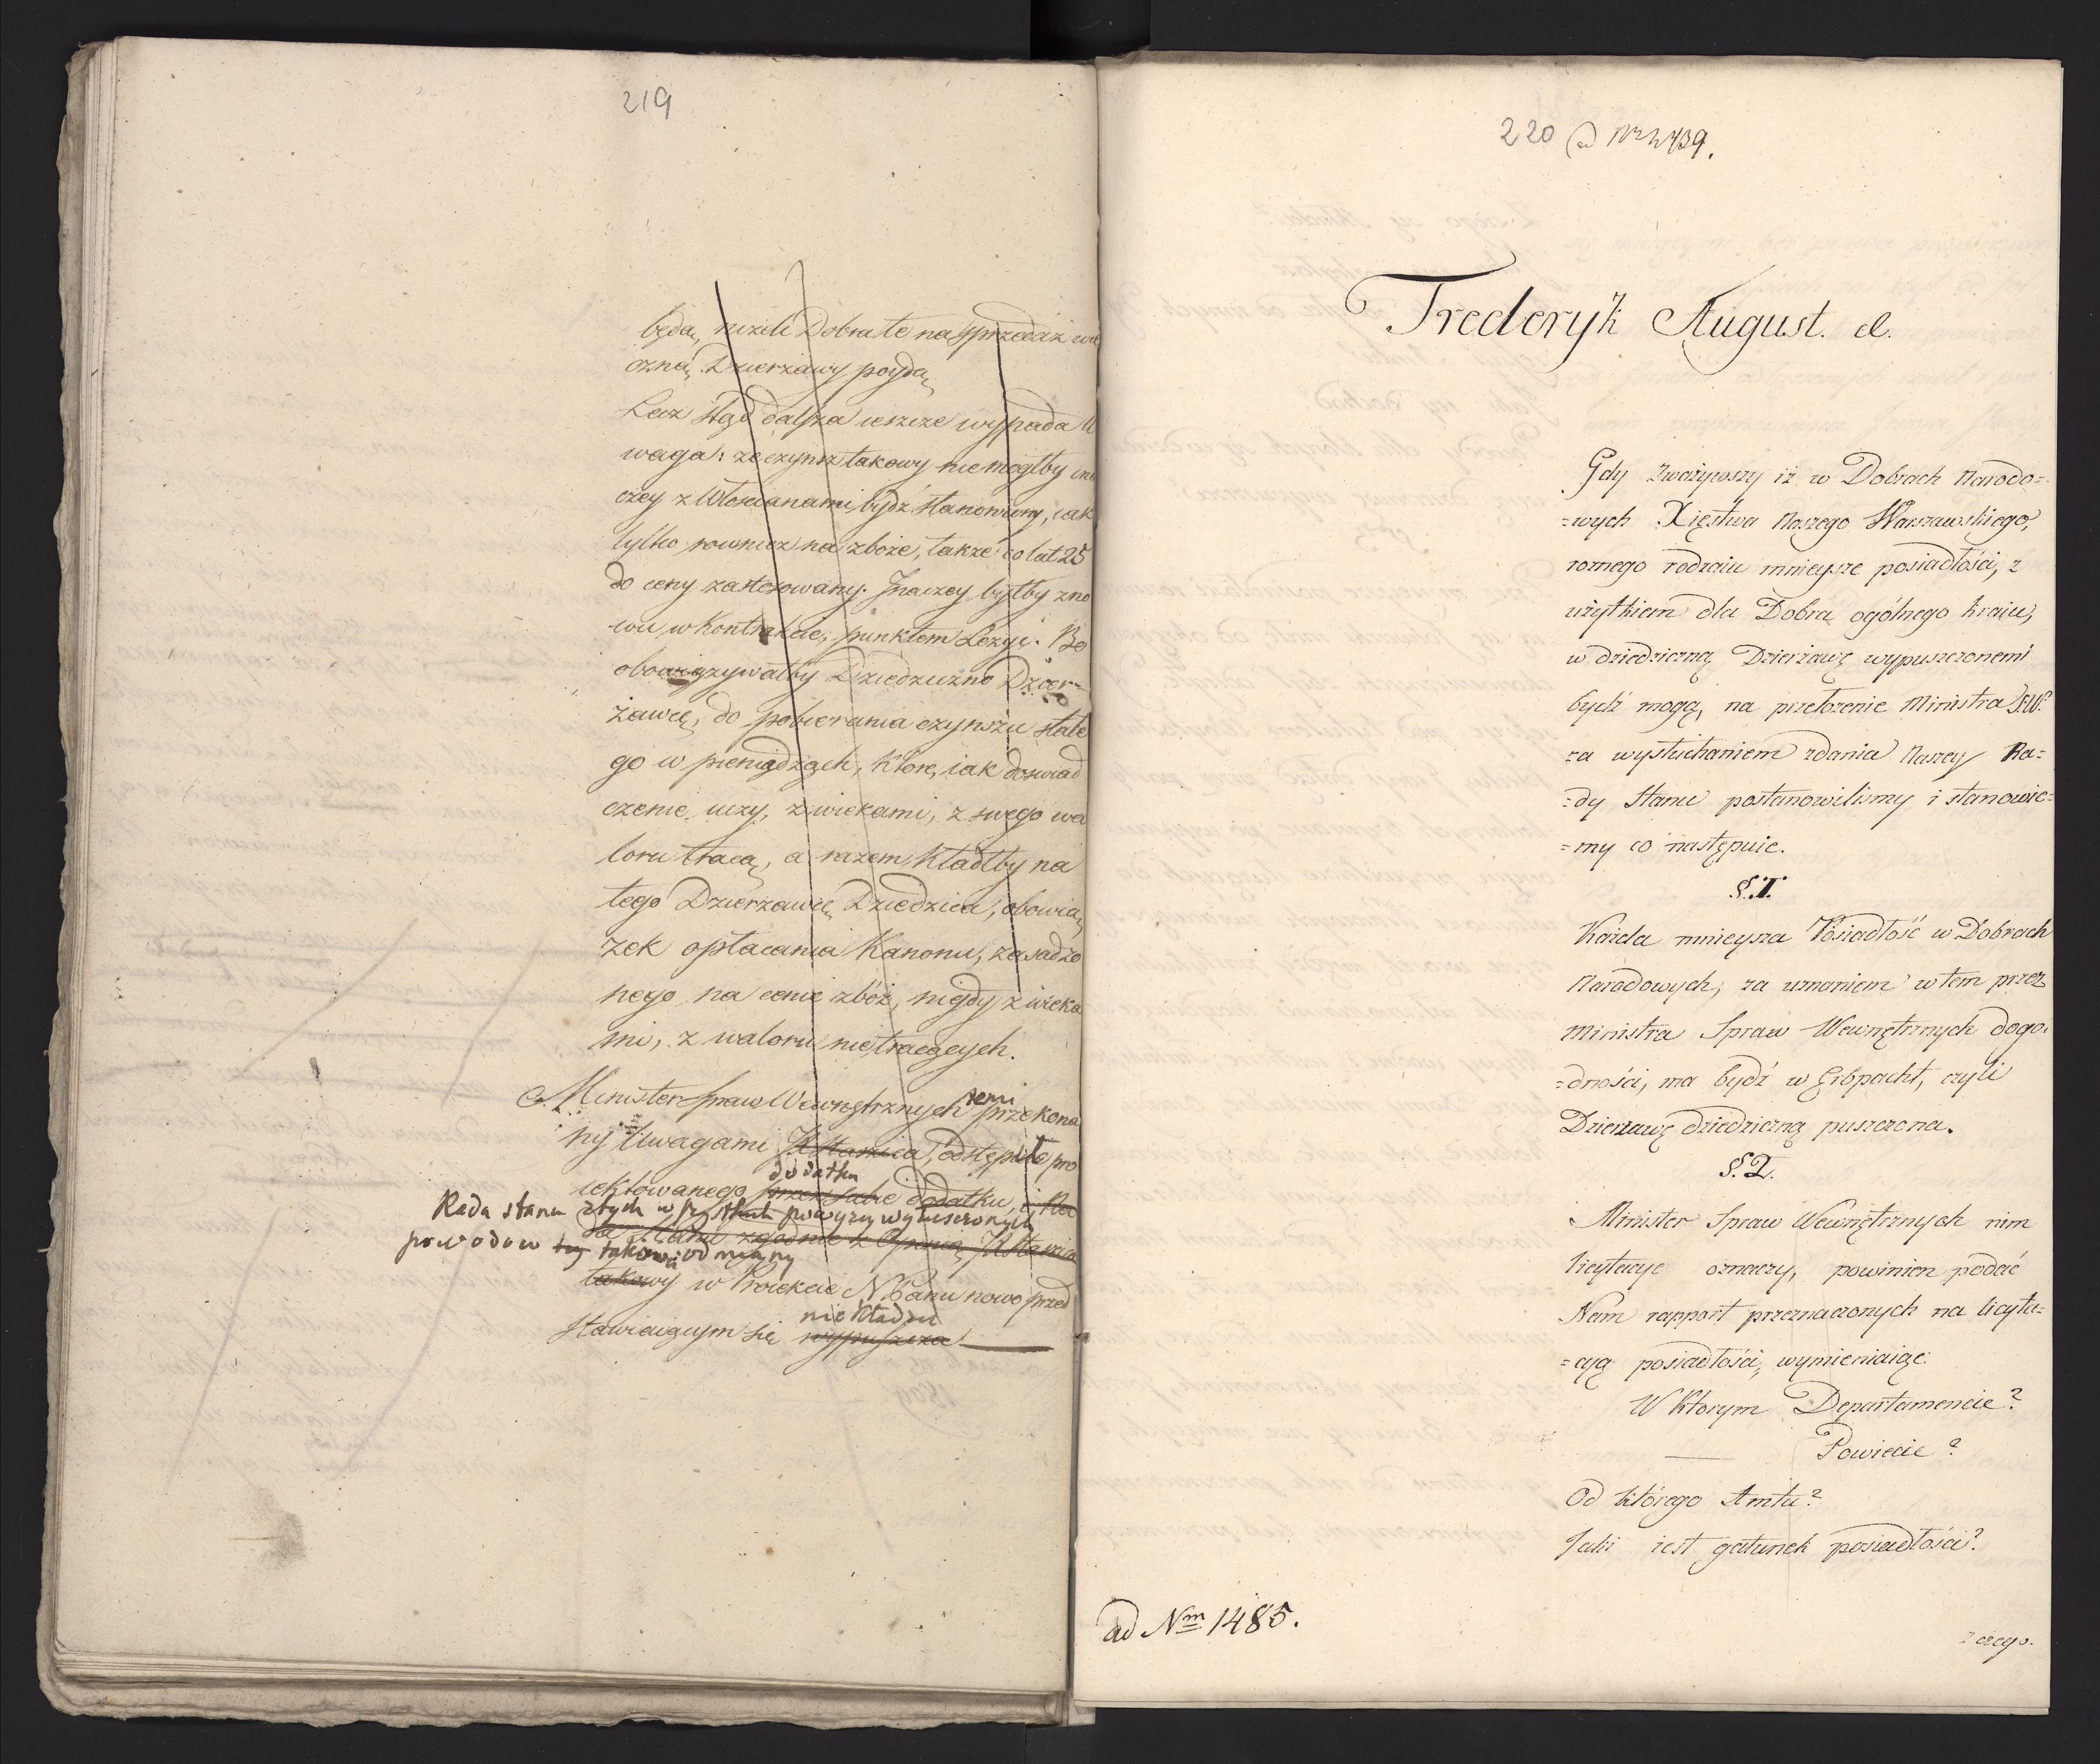 219
będą, niżeli Dobra te na sprzedaż wie
czną Dzierżawy poydą
Lecz stąd dalsza ieszcze wypada U
waga: że czynsz takowy nie mogłby ina
czey z Włoscianami bydź stanowiony, iak
tylko rownież na zboże, także co lat 25
do ceny zastosowany. Inaczey byłby zno
wu w kontrakcie, punktem Lezyi. Bo
obowiązywałby Dziedziczno Dzier-
żawcę, do pobierania czynszu stałe
go w pieniądzach, które, iak doswiad
czenie uczy, z wiekami, z swego wa
loru tracą, a razem kładłby na
tego Dzierżawcę Dziedzica, obowią
zek opłacania Kanonu, zasadzo
nego na cenie zbóż, nigdy z wieka
mi, z waloru nie tracących.
temi
Minister Spraw Wewnętrznych przekona
ny Uwagami JP Staszica, odstąpił pro
dodatku
iektowanego przez siebie dodatku, i Ra
Rada stanu zbych powyzey wyłuszczonych
da Stanu zgodnie z Opinią JP Staszica
powodow tey takowey odmiany
takowy w Proiekcie N. Panu nowo przed
nie kładzie
stawiaiącym się wypuszcza
220 ad Nr 2439.
Frederyk August. etc.
Gdy zważywszy iż w Dobrach Narodo=
=wych Xięstwa Naszego Warszawskiego,
roznego rodzaiu mnieysze posiadłości, z
użytkiem dla Dobra ogólnego kraiu,
w dziedziczną Dzierżawę wypuszczonemi
bydź mogą, na przełożenie Ministra S.W.
za wysłuchaniem zdania Naszey Ra=
=dy Stanu postanowilismy i stanowie=
=my co następuie.
§. I.
Każda mnieysza Posiadłość w Dobrach
Narodowych, za uznaniem w tem przez
Ministra Spraw Wewnętrznych dogo=
=dności, ma bydź w Erbpacht, czyli
Dzierżawę dziedziczną puszczona.
§. 2.
Minister Spraw Wewnętrznych nim
licytacye oznaczy, powinien podać
Nam rapport przeznaczonych na licyta=
=cyą posiadłości, wymieniaiąc:
W którym Departamencie?
—— Powiecie?
Od którego Amtu?
Jaki iest gatunek posiadłości?
ad Nm 1485.
z czego.